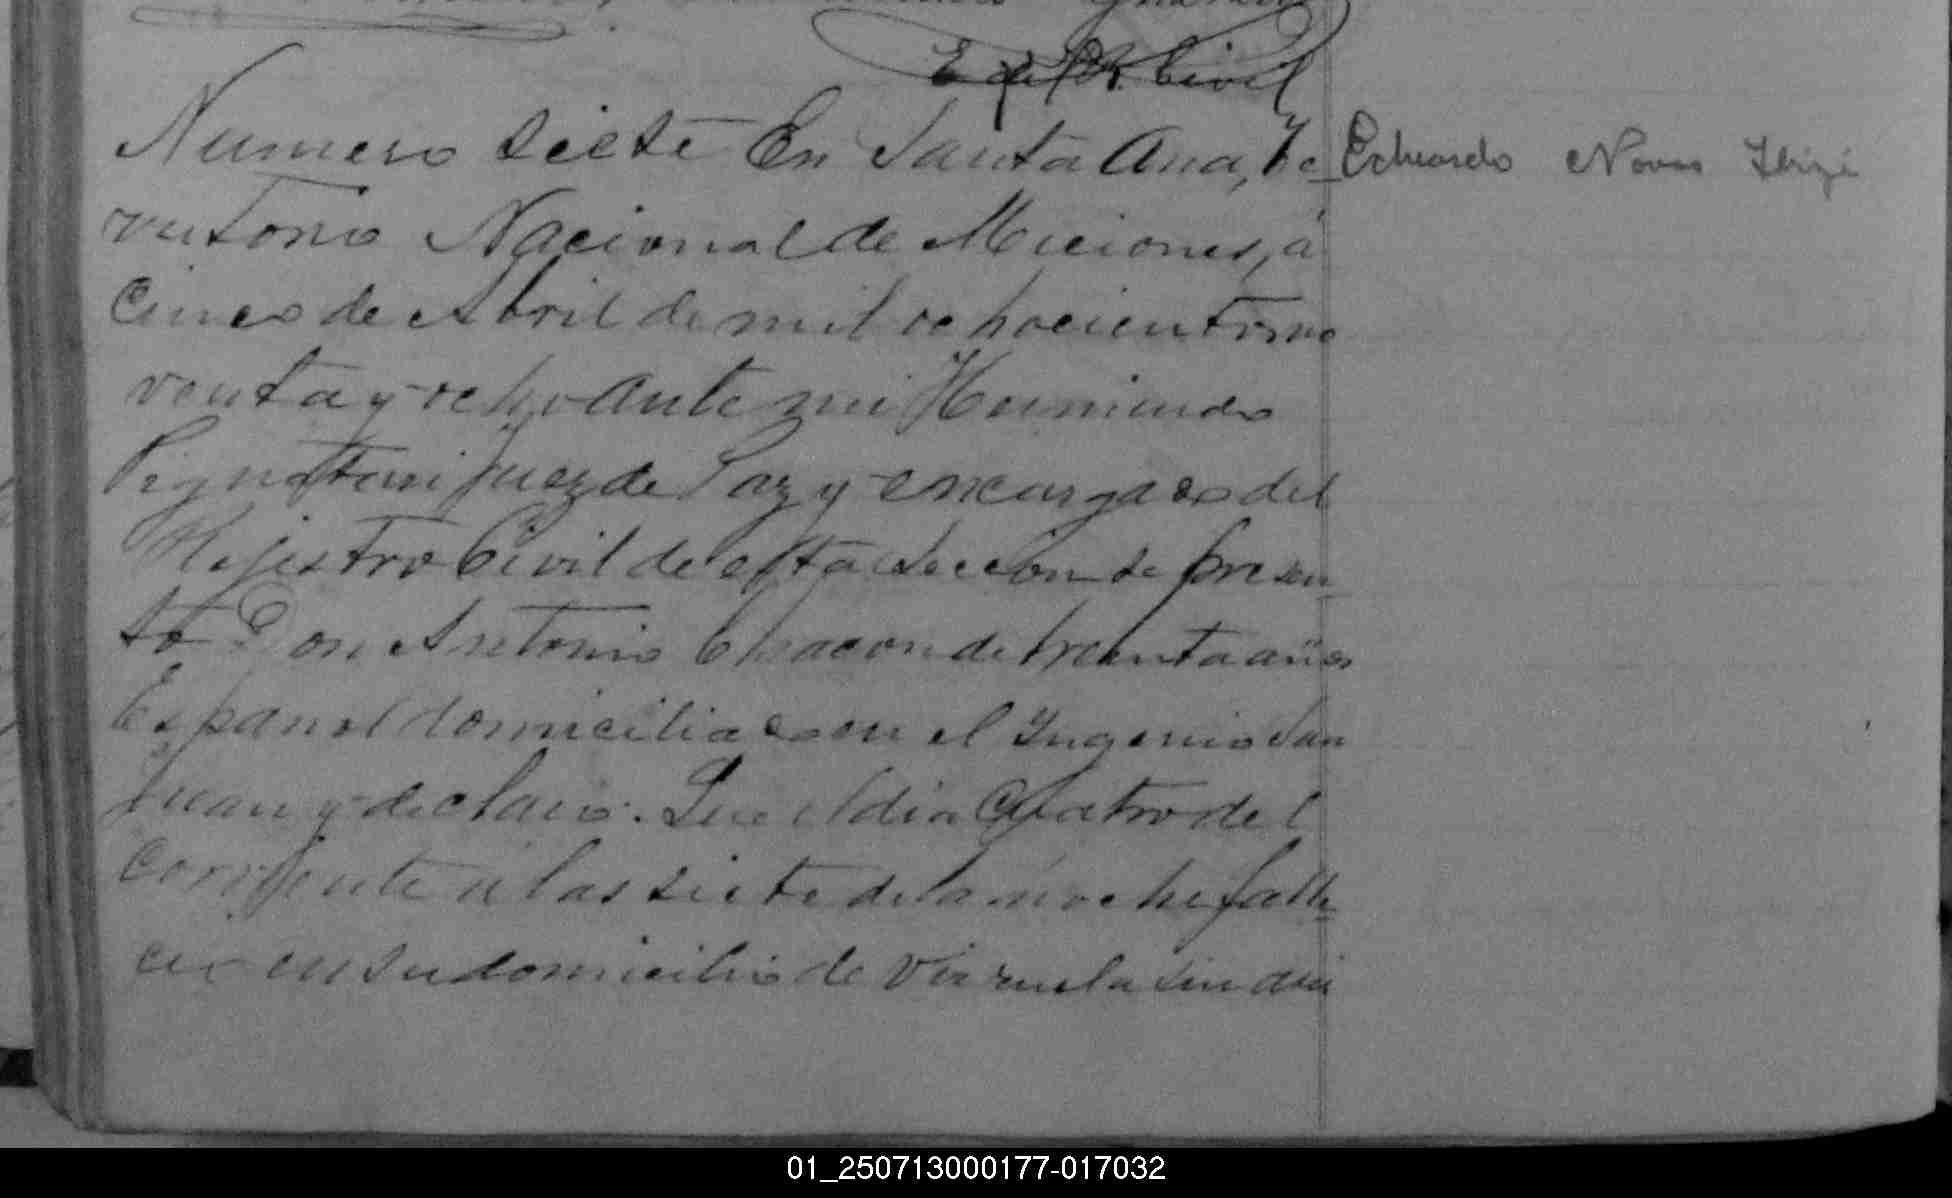 E. del R. Civil
Numero siete En Santa Ana, Te_
rritorio Nacional de Miciones, á
cinco de Abril de mil ochocientos no
venta y ocho ante mi
Juez de Paz y encargado del
Rejistro Civil de esta Seccion se presen_
tó Don Antonio Chacon de treinta años
Español domiciliado en el Ingenio San
Juan y declaró: Que el dia cuatro del
corriente á las siete de la noche falle_
ció en su domicilio de viruela sin asis
Eduardo Novas
01_250713000177-017032